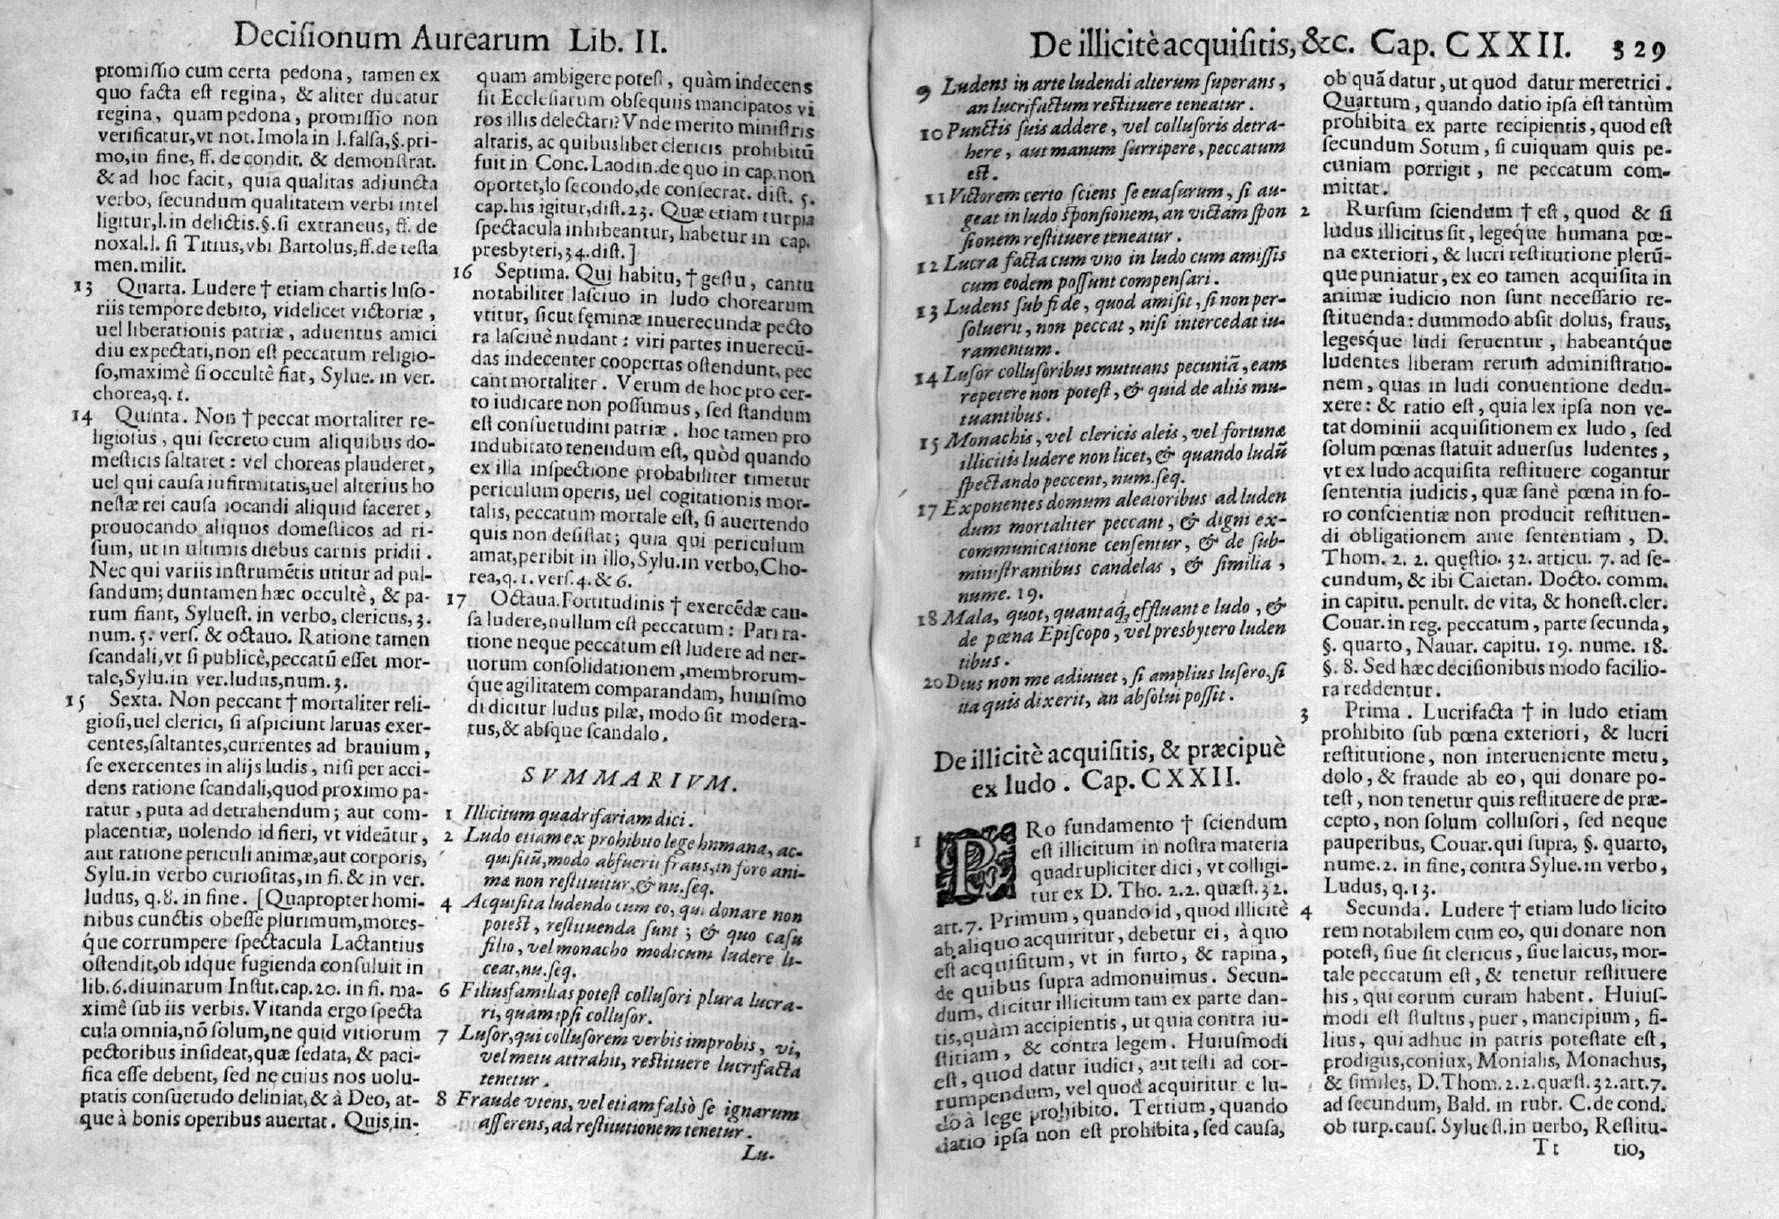 Deciſionum Aurearum Lib. II.
promiſſio cum certa pedona, tamen ex
quo facta eſt regina, & aliter ducatur
regina, quam pedona, promiſſio non
verificatur, vt not. Imola in l. falſa, §. pri-
mo, in fine, ff. de condit. & demonſtrat.
& ad hoc facit, quia qualitas adiuncta
verbo, ſecundum qualitatem verbi intel
ligitur, l. in delictis. §. ſi extraneus, ff. de
noxal. l. ſi Titius, vbi Bartolus, ff. de teſta
men. milit.
13 Quarta. Ludere † etiam chartis luſo-
riis tempore debito, videlicet victoriæ,
uel liberationis patriæ, aduentus amici
diu expectati, non eſt peccatum religio-
ſo, maximè ſi occultè fiat, Sylue. in ver.
chorea, q. 1.
14 Quinta. Non † peccat mortaliter re-
ligioſus, qui ſecreto cum aliquibus do-
meſticis ſaltaret: vel choreas plauderet,
uel qui cauſa infirmitatis, uel alterius ho
neſtæ rei cauſa iocandi aliquid faceret,
prouocando aliquos domeſticos ad ri-
ſum, ut in ultimis diebus carnis pridii.
Nec qui variis inſtrumẽtis utitur ad pul-
ſandum; duntamen hæc occultè, & pa-
rum fiant, Sylueſt. in verbo, clericus, 3.
num. 5. verſ. & octauo. Ratione tamen
ſcandali, vt ſi publicè, peccatũ eſſet mor-
tale, Sylu. in ver. ludus, num. 3.
15 Sexta. Non peccant † mortaliter reli-
gioſi, uel clerici, ſi aſpiciunt laruas exer-
centes, ſaltantes, currentes ad brauium,
ſe exercentes in alijs ludis, niſi per acci-
dens ratione ſcandali, quod proximo pa-
ratur, puta ad detrahendum; aut com-
placentiæ, uolendo id fieri, vt videãtur,
aut ratione periculi animæ, aut corporis,
Sylu. in verbo curioſitas, in fi. & in ver.
ludus, q. 8. in fine. [Quapropter homi-
nibus cunctis obeſſe plurimum, mores-
q́ue corrumpere ſpectacula Lactantius
oſtendit, ob idque fugienda conſuluit in
lib. 6. diuinarum Inſtit. cap. 20. in fi. ma-
ximè ſub iis verbis. Vitanda ergo ſpecta
cula omnia, nõ ſolum, ne quid vitiorum
pectoribus inſideat, quæ ſedata, & paci-
fica eſſe debent, ſed ne cuius nos uolu-
ptatis conſuetudo deliniat, & à Deo, at-
que à bonis operibus auertat. Quis, in-
quam ambigere poteſt, quàm indecens
ſit Eccleſiarum obſequiis mancipatos vi
ros illis delectari? Vnde merito miniſtris
altaris, ac quibuslibet clericis prohibitũ
fuit in Conc. Laodin. de quo in cap. non
oportet, lo ſecondo, de conſecrat. diſt. 5.
cap. his igitur, diſt. 23. Quæ etiam turpia
ſpectacula inhibeantur, habetur in cap.
presbyteri, 34. diſt.]
16 Septima. Qui habitu, † geſtu, cantu
notabiliter laſciuo in ludo chorearum
vtitur, ſicut fęminæ inuerecundæ pecto
ra laſciuè nudant: viri partes inuerecũ-
das indecenter coopertas oſtendunt, pec
cant mortaliter. Verum de hoc pro cer-
to iudicare non poſſumus, ſed ſtandum
eſt conſuetudini patriæ. hoc tamen pro
indubitato tenendum eſt, quòd quando
ex illa inſpectione probabiliter timetur
periculum operis, uel cogitationis mor-
talis, peccatum mortale eſt, ſi auertendo
quis non deſiſtat; quia qui periculum
amat, peribit in illo, Sylu. in verbo, Cho-
rea, q. 1. verſ. 4. & 6.
17 Octaua. Fortitudinis † exercẽdæ cau-
ſa ludere, nullum eſt peccatum: Pari ra-
tione neque peccatum eſt ludere ad ner-
uorum conſolidationem, membrorum-
q́ue agilitatem comparandam, huiuſmo
di dicitur ludus pilæ, modo ſit modera-
tus, & abſque ſcandalo.
SVMMARIVM.
1 Illicitum quadrifariam dici.
2 Ludo etiam ex prohibito lege humana, ac-
quiſitũ, modo abfuerit fraus, in foro ani-
mæ non reſtituitur, & nu. ſeq.
4 Acquiſita ludendo cum eo, qui donare non
poteſt, reſtituenda ſunt; & quo caſu
filio, vel monacho modicum ludere li-
ceat, nu. ſeq.
6 Filiusfamilias poteſt colluſori plura lucra-
ri, quam ipſi colluſor.
7 Luſor, qui colluſorem verbis improbis, vi,
vel metu attrahit, reſtituere lucrifacta
tenetur.
8 Fraude vtens, vel etiam falsò ſe ignarum
aſſerens, ad reſtitutionem tenetur.
Lu-
De illicitè acquiſitis, &c. Cap. CXXII. 329
9 Ludens in arte ludendi alterum ſuperans,
an lucrifactum reſtituere teneatur.
10 Punctis ſuis addere, vel colluſoris detra-
here, aut manum ſurripere, peccatum
eſt.
11 Victorem certo ſciens ſe euaſurum, ſi au-
geat in ludo ſponſionem, an victam ſpon
ſionem reſtituere teneatur.
12 Lucra facta cum vno in ludo cum amiſſis
cum eodem poſſunt compenſari.
13 Ludens ſub fide, quod amiſit, ſi non per-
ſoluerit, non peccat, niſi intercedat iu-
ramentum.
14 Luſor colluſoribus mutuans pecuniã, eam
repetere non poteſt, & quid de aliis mu-
tuantibus.
15 Monachis, vel clericis aleis, vel fortunæ
illicitis ludere non licet, & quando ludũ
ſpectando peccent, num. ſeq.
17 Exponentes domum aleatoribus ad luden
dum mortaliter peccant, & digni ex-
communicatione cenſentur, & de ſub-
miniſtrantibus candelas, & ſimilia,
nume. 19.
18 Mala, quot, quantaq́; effluant e ludo, &
de pœna Epiſcopo, vel presbytero luden
tibus.
20 Deus non me adiuuet, ſi amplius luſero, ſi
ita quis dixerit, an abſolui poſſit.
De illicitè acquiſitis, & præcipuè
ex ludo. Cap. CXXII.
1 PRo fundamento † ſciendum
eſt illicitum in noſtra materia
quadrupliciter dici, vt colligi-
tur ex D. Tho. 2.2. quæſt. 32.
art. 7. Primum, quando id, quod illicitè
ab aliquo acquiritur, debetur ei, à quo
eſt acquiſitum, vt in furto, & rapina,
de quibus ſupra admonuimus. Secun-
dum, dicitur illicitum tam ex parte dan-
tis, quàm accipientis, ut quia contra iu-
ſtitiam, & contra legem. Huiuſmodi
eſt, quod datur iudici, aut teſti ad cor-
rumpendum, vel quod acquiritur e lu-
do à lege prohibito. Tertium, quando
datio ipſa non eſt prohibita, ſed cauſa,
ob quã datur, ut quod datur meretrici.
Quartum, quando datio ipſa eſt tantùm
prohibita ex parte recipientis, quod eſt
ſecundum Sotum, ſi cuiquam quis pe-
cuniam porrigit, ne peccatum com-
mittat.
2 Rurſum ſciendum † eſt, quod & ſi
ludus illicitus ſit, legeq́ue humana pœ-
na exteriori, & lucri reſtitutione plerũ-
que puniatur, ex eo tamen acquiſita in
animæ iudicio non ſunt neceſſario re-
ſtituenda: dummodo abſit dolus, fraus,
legeſque ludi ſeruentur, habeantq́ue
ludentes liberam rerum adminiſtratio-
nem, quas in ludi conuentione dedu-
xere: & ratio eſt, quia lex ipſa non ve-
tat dominii acquiſitionem ex ludo, ſed
ſolum pœnas ſtatuit aduerſus ludentes,
vt ex ludo acquiſita reſtituere cogantur
ſententia iudicis, quæ ſanè pœna in fo-
ro conſcientiæ non producit reſtituen-
di obligationem ante ſententiam, D.
Thom. 2. 2. quęſtio. 32. articu. 7. ad ſe-
cundum, & ibi Caietan. Docto. comm.
in capitu. penult. de vita, & honeſt. cler.
Couar. in reg. peccatum, parte ſecunda,
§. quarto, Nauar. capitu. 19. nume. 18.
§. 8. Sed hæc deciſionibus modo facilio-
ra reddentur.
3 Prima. Lucrifacta † in ludo etiam
prohibito ſub pœna exteriori, & lucri
reſtitutione, non interueniente metu,
dolo, & fraude ab eo, qui donare po-
teſt, non tenetur quis reſtituere de præ-
cepto, non ſolum colluſori, ſed neque
pauperibus, Couar. qui ſupra, §. quarto,
nume. 2. in fine, contra Sylue. in verbo,
Ludus, q. 13.
4 Secunda. Ludere † etiam ludo licito
rem notabilem cum eo, qui donare non
poteſt, ſiue ſit clericus, ſiue laicus, mor-
tale peccatum eſt, & tenetur reſtituere
his, qui eorum curam habent. Huiuſ-
modi eſt ſtultus, puer, mancipium, fi-
lius, qui adhuc in patris poteſtate eſt,
prodigus, coniux, Monialis, Monachus,
& ſimiles, D. Thom. 2.2. quæſt. 32. art. 7.
ad ſecundum, Bald. in rubr. C. de cond.
ob turp. cauſ. Sylueſt. in uerbo, Reſtitu-
Tt tio,